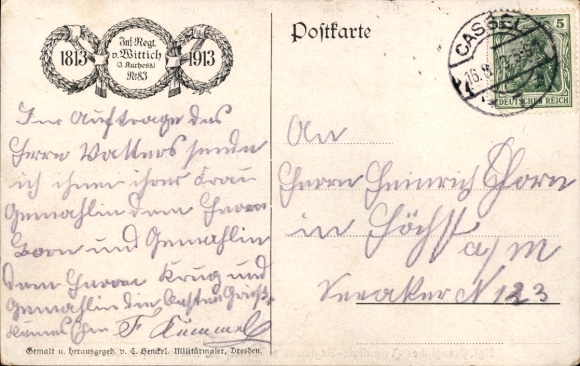 1813
Inf.-Regt.
v. Wittich
(3 Kurhess)
Nr. 83
1913
Postkarte
CASSEL
16.8.
5
DEUTSCHES REICH
Im Auftrage des
Herrn Vatters sende
ich ihnen ihrer Frau
Gemahlin dem Herrn
Born und Gemahlin
dem Herrn Krug und
Gemahlin die besten Grüße
F Kümmel
An
Herrn Heinrich Born
in Höchst
a/m
N 123
Gemalt u. herausgegeb. v. C. Henckel, Militärmaler, Dresden.